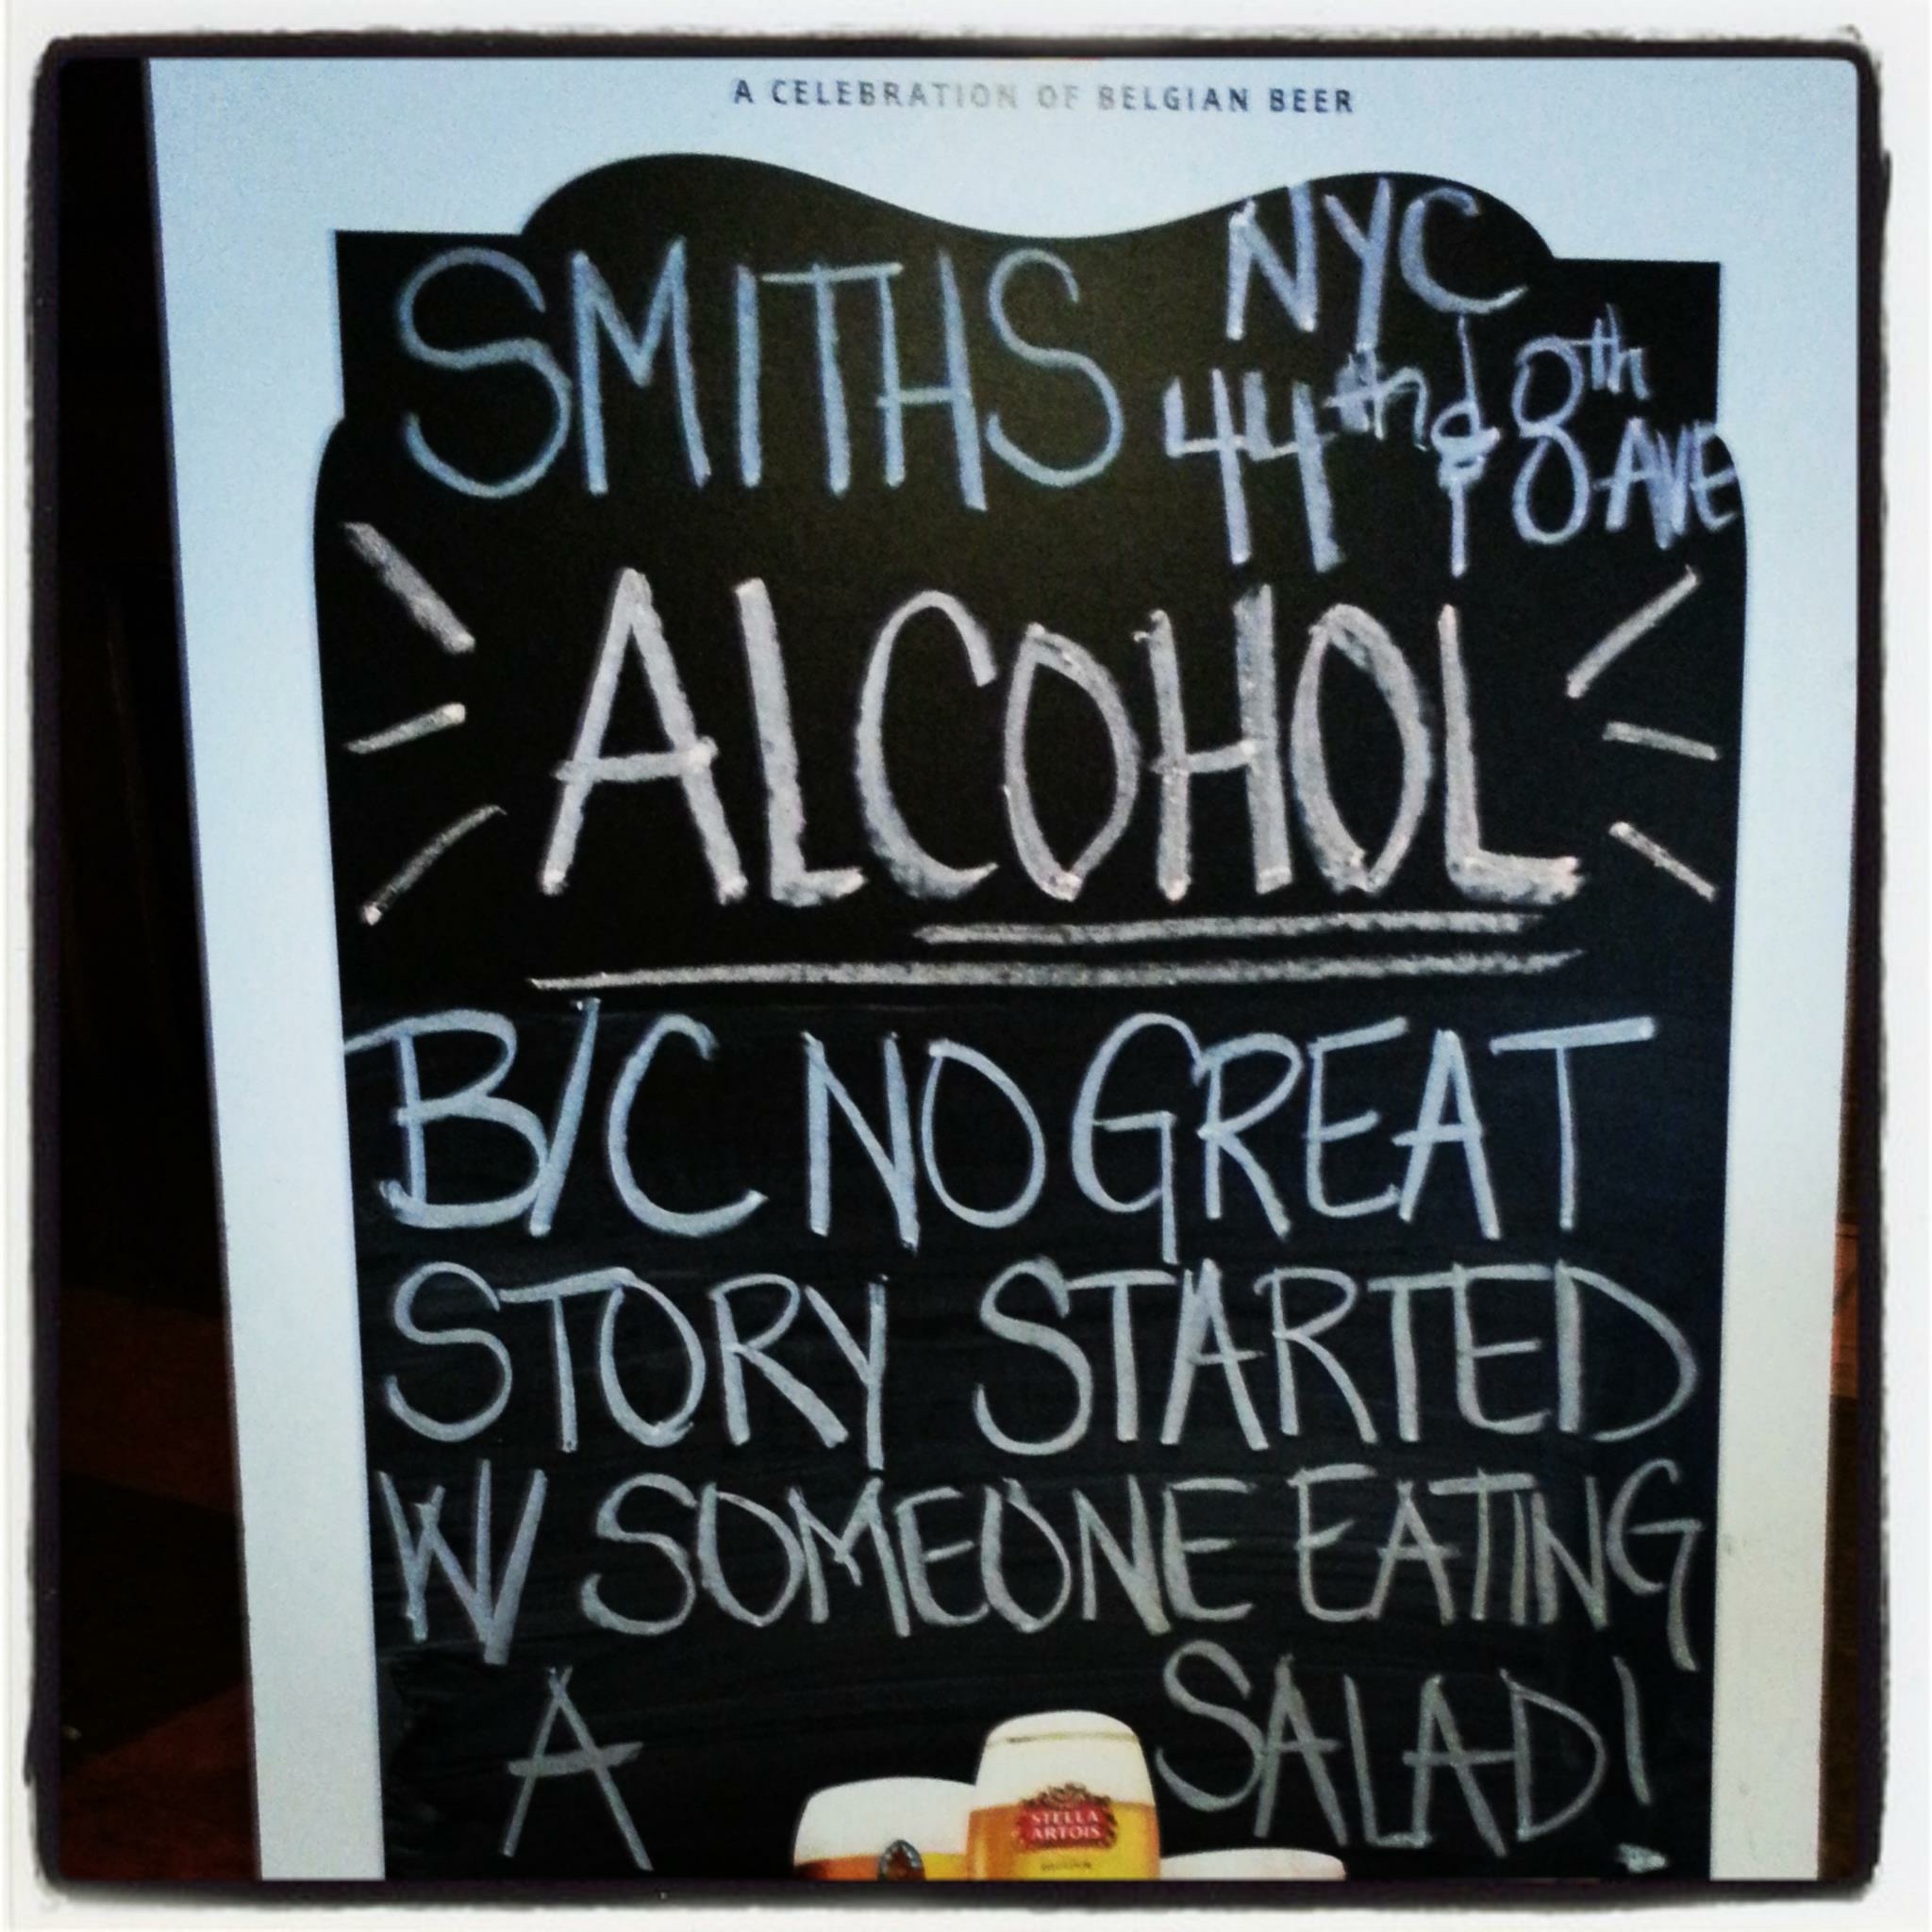 A CELEBRATION OF BELGIAN BEER
SMITHS NYC
44th & 8th AVE
ALCOHOL
B/C NO GREAT
STORY STARTED
W/ SOMEONE EATING
A SALAD!
STELLA
ARTOIS